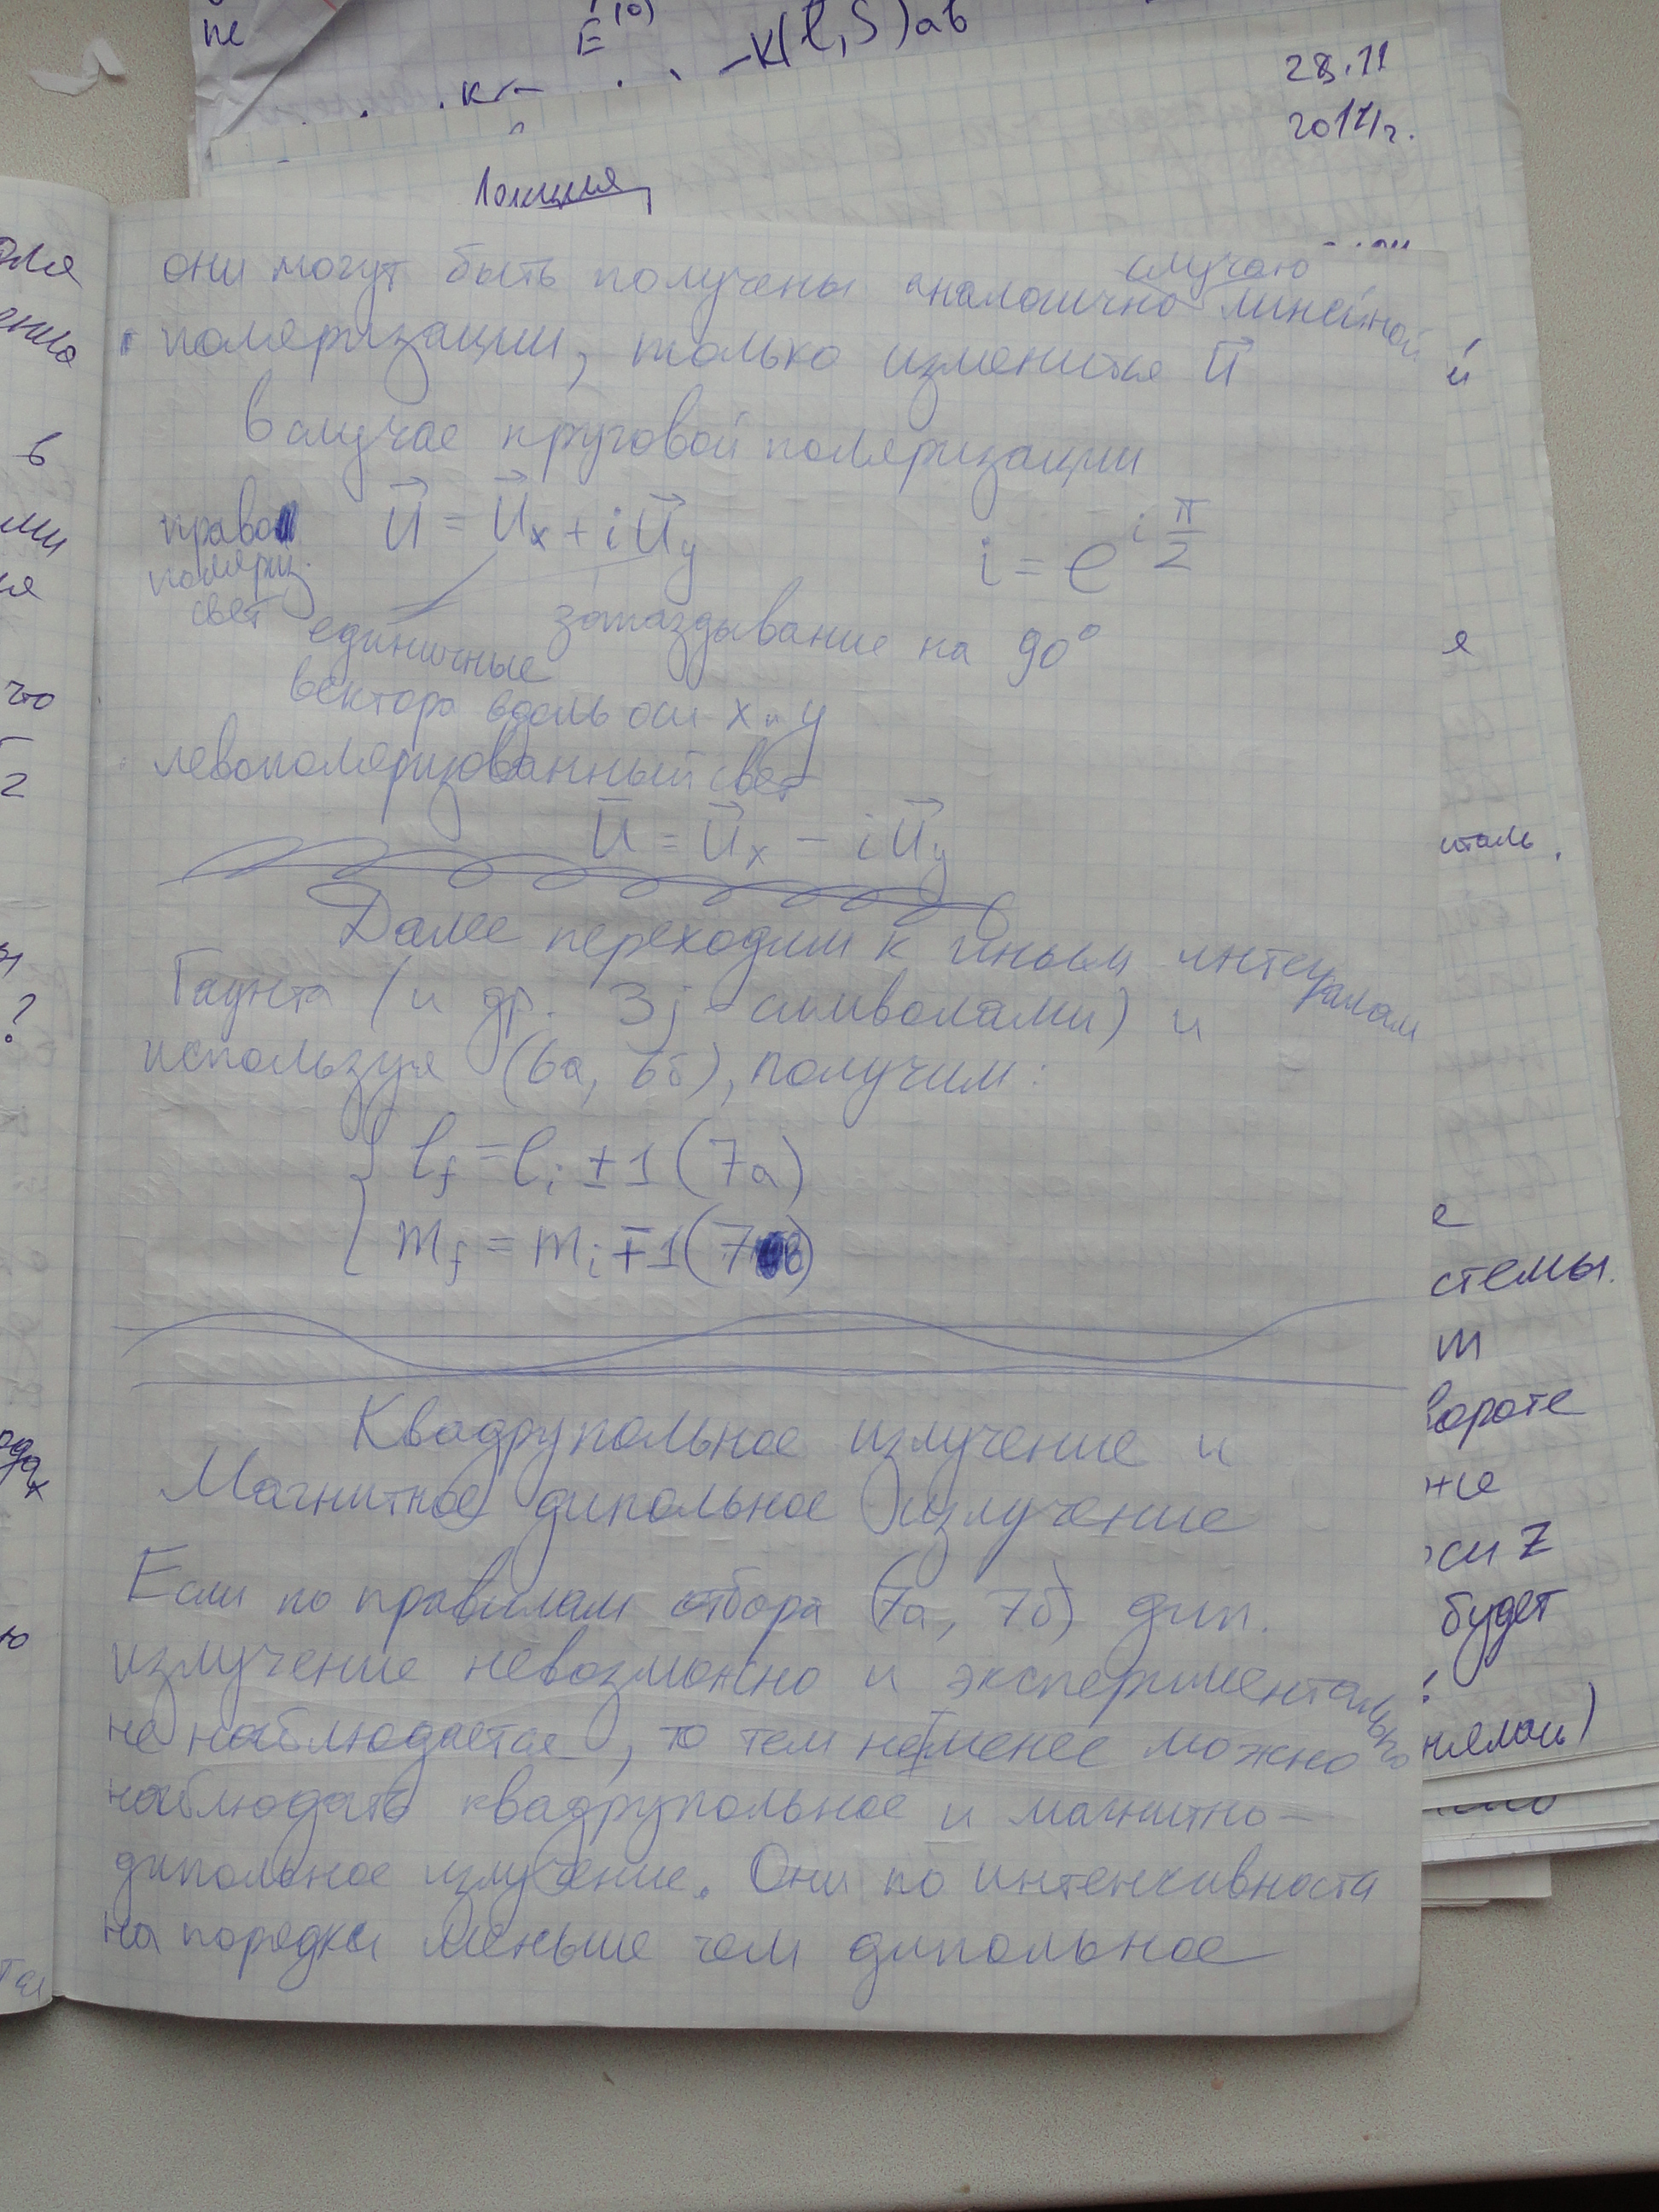 не
E(0)
-K(l,S)ab
28.11
2017г.
Лекция
они могут быть получены аналогично случаю линейной
поляризации, только изменится u⃗
В случае круговой поляризации
право
поляриз.
свет
u⃗ = u⃗x + iu⃗y
i = e^(i π/2)
единичные
запаздывание на 90°
вектора вдоль оси x и y
левополяризованный свет
u⃗ = u⃗x − iu⃗y
Далее переходим к иным интегралам
Гаунта (и др. 3j-символами) и
используя (6а, 6б), получим:
lf = li ± 1 (7а)
mf = mi ∓ 1 (7в)
Квадрупольное излучение и
Магнитное дипольное излучение
Если по правилам отбора (7а, 7б) дип.
излучение невозможно и экспериментально
не наблюдается, то тем не менее можно
наблюдать квадрупольное и магнитно-
дипольное излучение. Они по интенсивноста
на порядки меньше чем дипольное
й
я
е
стемы.
m
вороте
же
оси Z
будет
в
ми
что
2
?
ю